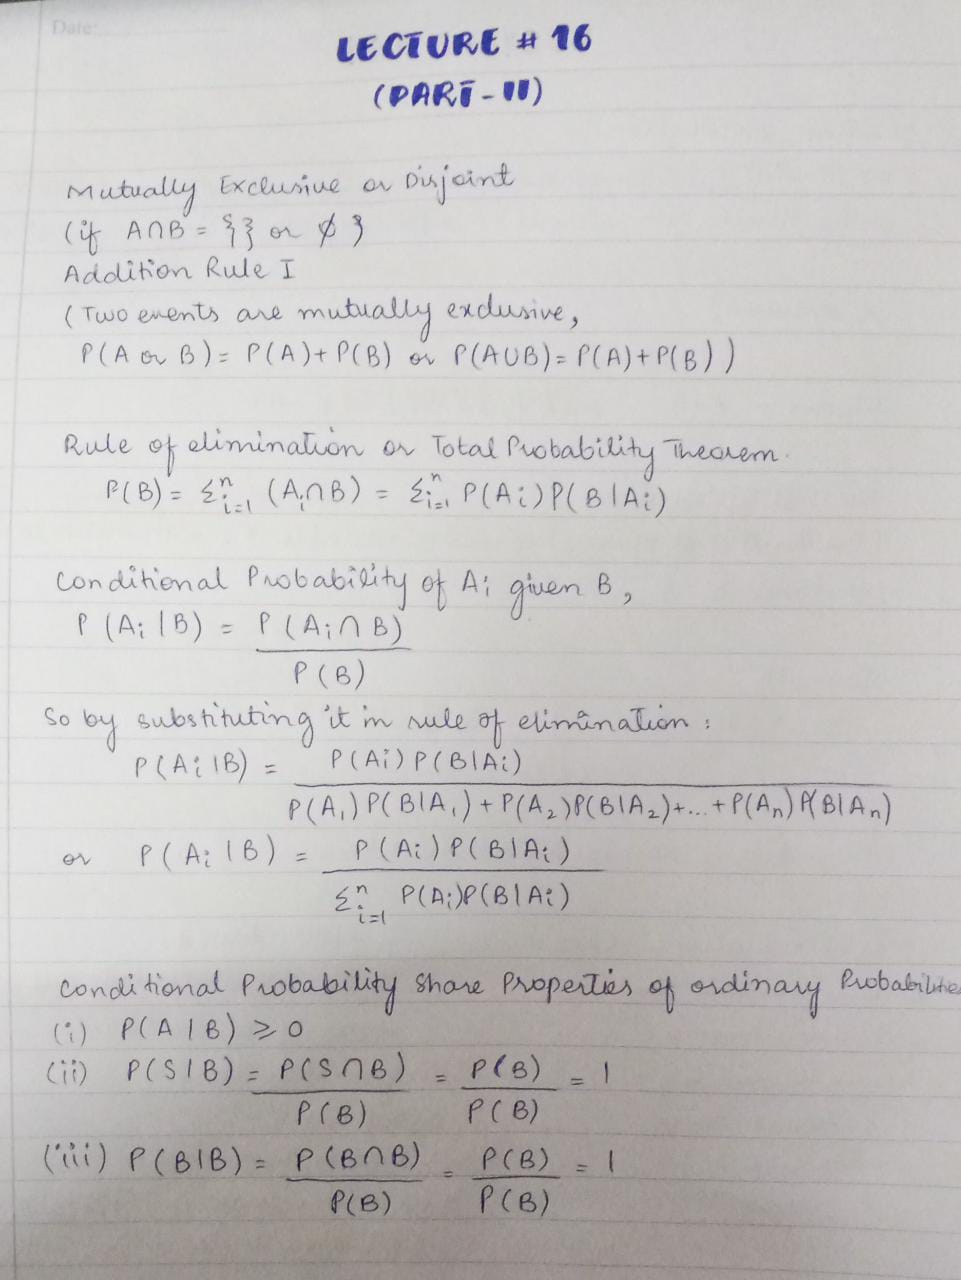 Date:
LECTURE # 16
(PART-II)
Mutually Exclusive or Disjoint
(if A∩B = {} or ∅ }
Addition Rule I
(Two events are mutually exclusive,
P(A or B) = P(A)+P(B) or P(A∪B)= P(A)+P(B))
Rule of elimination or Total Probability Theorem.
P(B) = Σⁿᵢ₌₁ (Aᵢ∩B) = Σⁿᵢ₌₁ P(Aᵢ)P(B|Aᵢ)
Conditional Probability of Aᵢ given B,
P(Aᵢ|B) = P(Aᵢ∩B)
P(B)
So by substituting it in rule of elimination :
P(Aᵢ|B) = P(Aᵢ)P(B|Aᵢ)
P(A₁)P(B|A₁)+P(A₂)P(B|A₂)+...+P(Aₙ)P(B|Aₙ)
or P(Aᵢ|B) = P(Aᵢ)P(B|Aᵢ)
Σⁿᵢ₌₁ P(Aᵢ)P(B|Aᵢ)
Conditional Probability Share Properties of ordinary Probabilities
(i) P(A|B) ⩾ 0
(ii) P(S|B) = P(S∩B) = P(B) = 1
P(B) P(B)
(iii) P(B|B) = P(B∩B) = P(B) = 1
P(B) P(B)